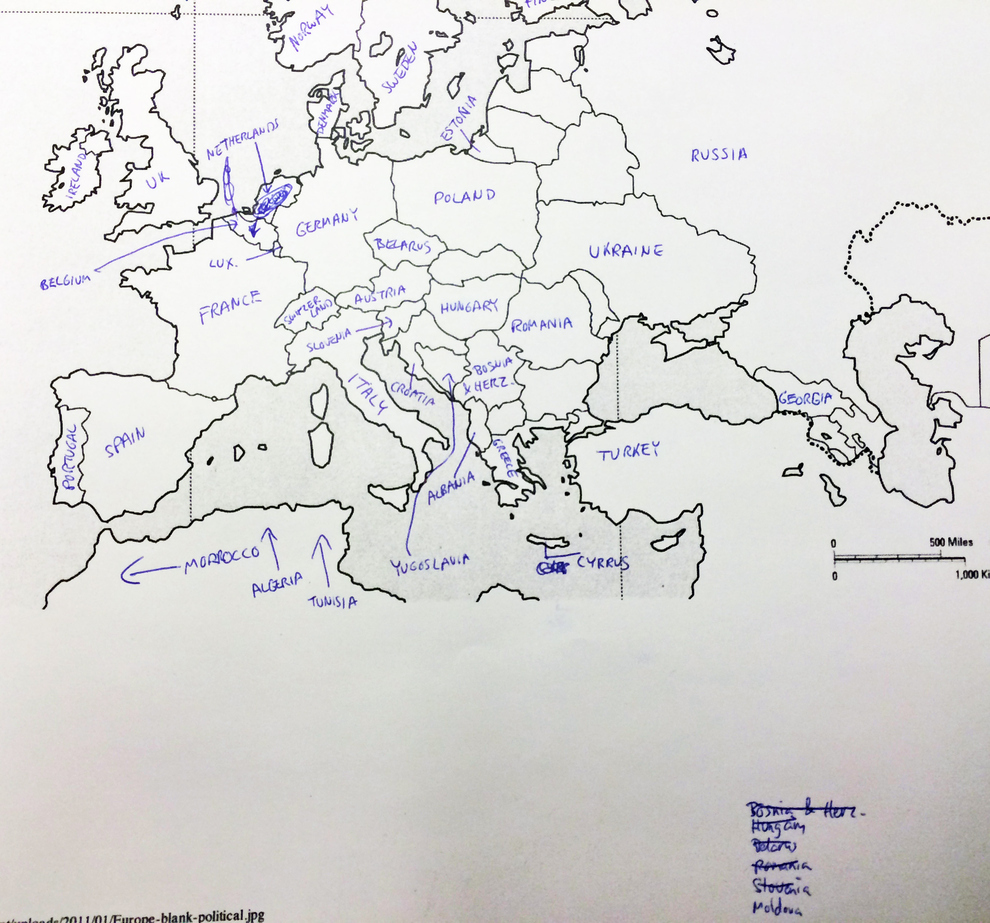 NORWAY
FIN
SWEDEN
DENMARK
ESTONIA
NETHERLANDS
RUSSIA
IRELAND
UK
POLAND
GERMANY
BELARUS
UKRAINE
BELGIUM
LUX.
FRANCE
SWITZER
LAND
AUSTRIA
HUNGARY
ROMANIA
SLOVENIA
BOSNIA
& HERZ.
ITALY
CROATIA
GEORGIA
PORTUGAL
SPAIN
GREECE
TURKEY
ALBANIA
MORROCCO
ALGERIA
TUNISIA
YUGOSLAVIA
CYRRUS
0 500 Miles
0 1,000 Ki
Bosnia & Herz.
Hungary
Belarus
Romania
Slovenia
Moldova
t/uploads/2011/01/Europe-blank-political.jpg